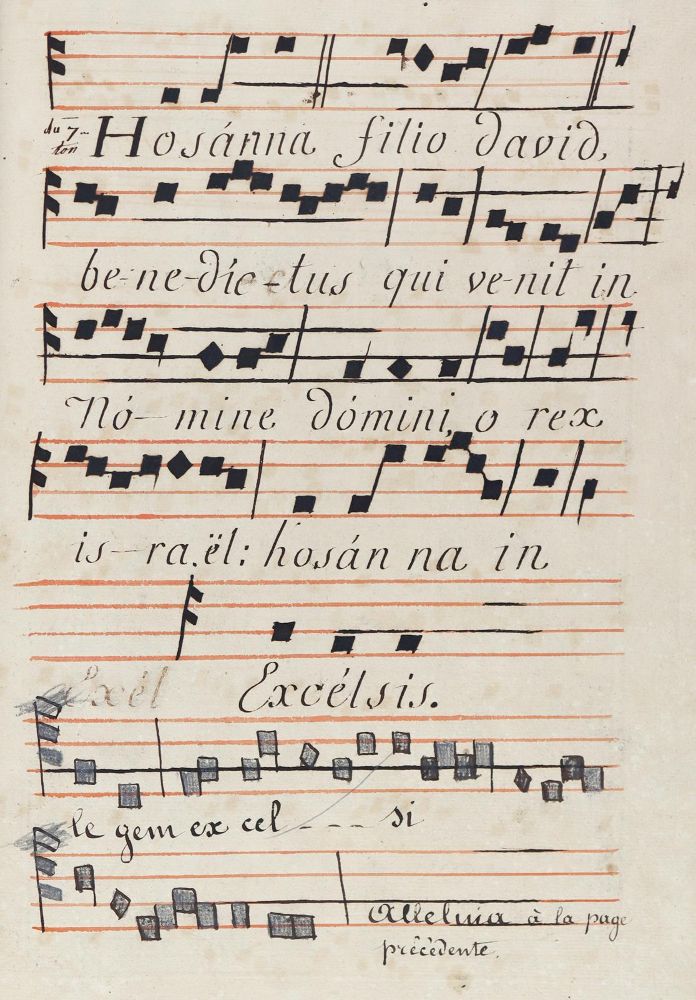 du 7.
ton
Hosánna filio david,
be-ne-dic-tus qui ve-nit in
Nó-mine dómini, o rex
is-ra.ël: hosán na in
Excél Excélsis.
le gem ex cel - - - si
Alleluia à la page
précédente.